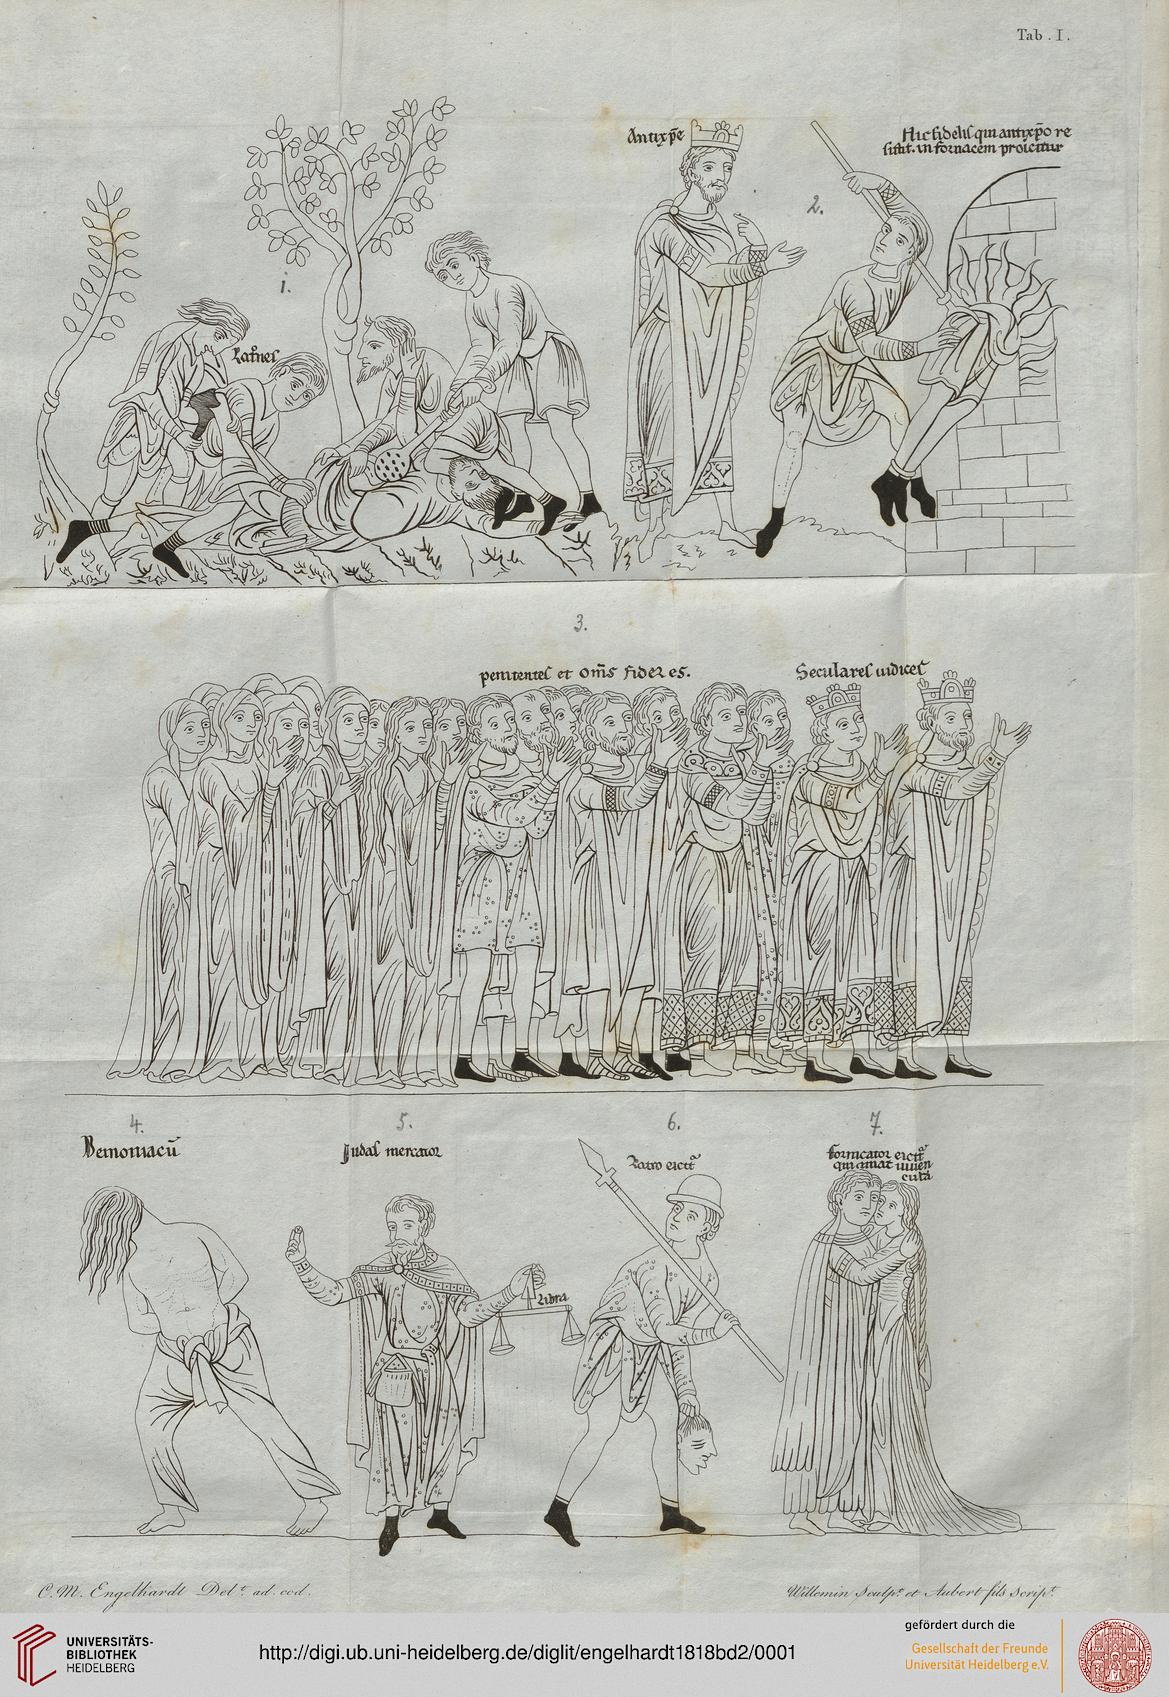 Tab. I.
Antixp̄e
Hic fidelis qui antixp̄o re
sistit. in fornacem proicitur
2.
1.
Latˀnes
3.
penitentes et om̄s fideles.
Seculares iudices
4.
Demoniacū
5.
Judas mercator
Libra
6.
Latro eicitᵃ
7.
fornicator eicitᵃ
qui amat iuuen
culā
C. M. Engelhardt Delᵗ. ad. cod.
Willemin Sculpᵗ. et Aubert fils Scripᵗ.
UNIVERSITÄTS-
BIBLIOTHEK
HEIDELBERG
http://digi.ub.uni-heidelberg.de/diglit/engelhardt1818bd2/0001
gefördert durch die
Gesellschaft der Freunde
Universität Heidelberg e.V.